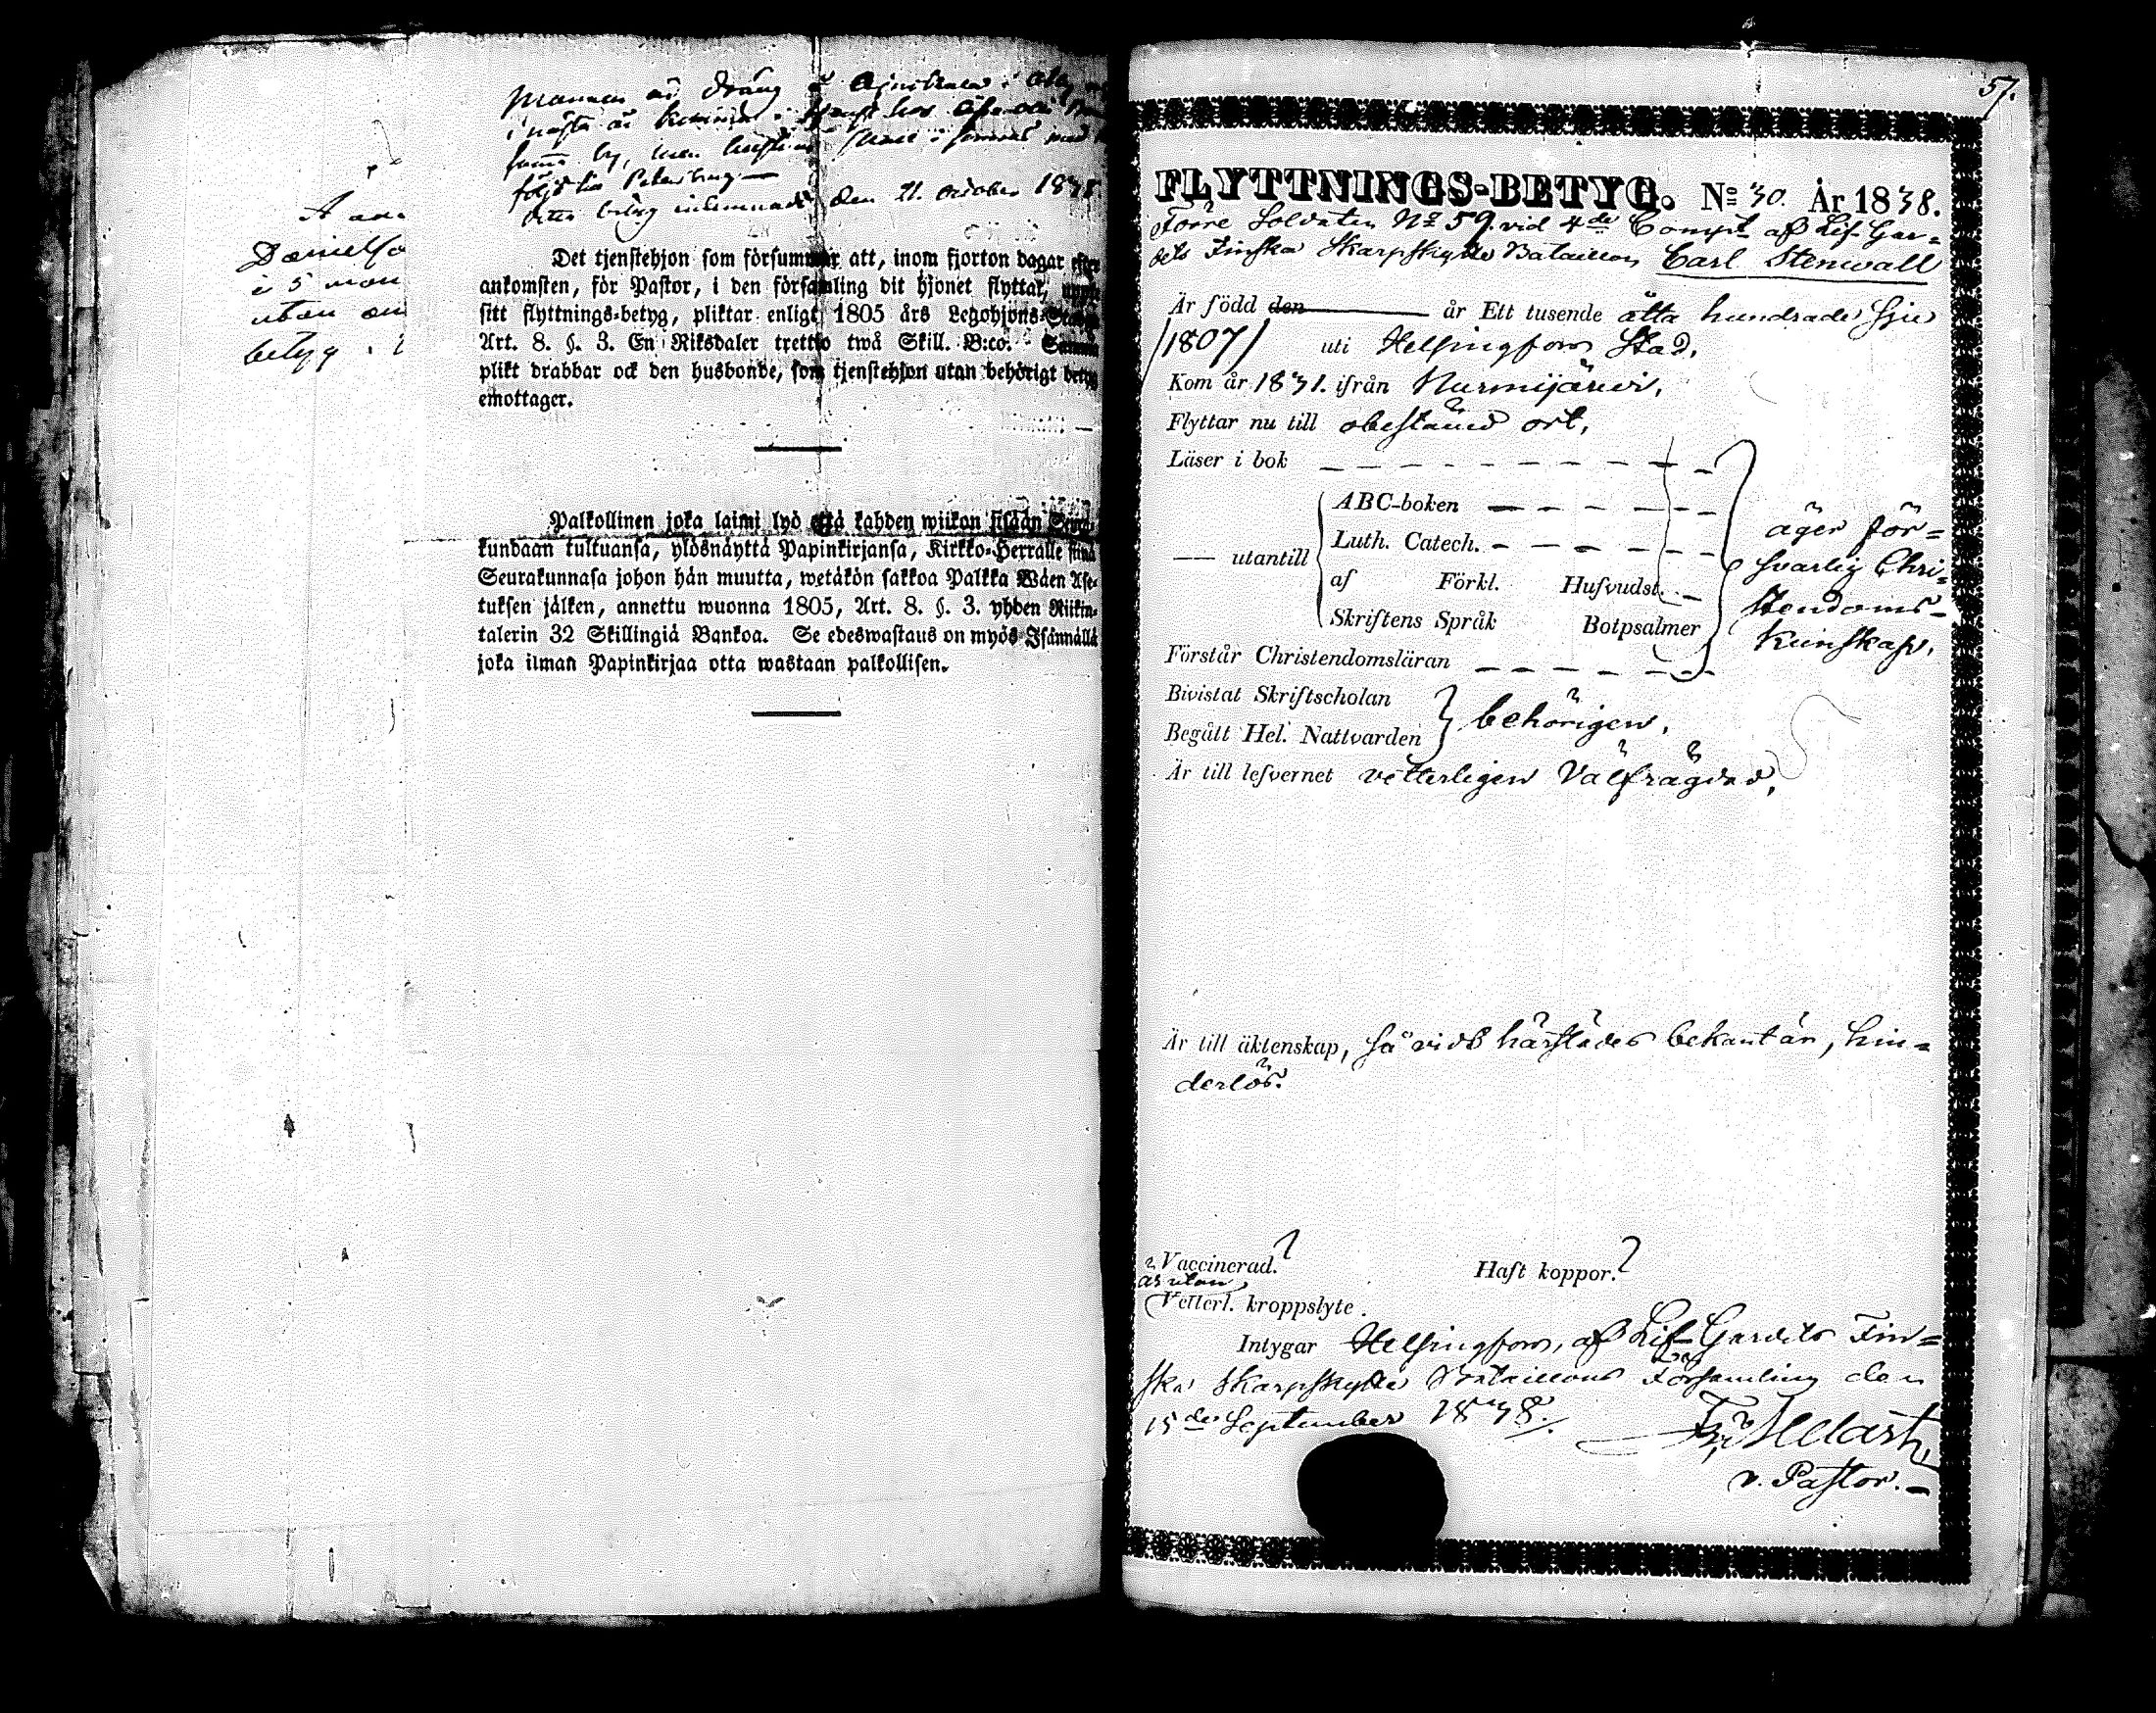 A
Danielso
i 5 mon
utan
betyg.
mannen är dräng
i nästa år
samma by, men
följd til Petersburg —
detta betyg inlemnadt den 21. October 1838.
Det tjenstehjon som försummar att, inom fjorton dagar efter
ankomsten, för Pastor, i den församling dit hjonet flyttat,
sitt flyttnings-betyg, pliktar enligt 1805 års Legohjons-Stadga
Art. 8. §. 3. En Riksdaler trettio twå Skill. B:co. Samma
plikt drabbar ock den husbonde, som tjenstehjon utan behörigt betyg
emottager.
Palkollinen joka laimi lyö että kahden wiikon sisään Seura-
kundaan tultuansa, ylösnäyttä Papinkirjansa, Kirkko-Herralle siinä
Seurakunnasa johon hän muutta, wetäkön sakkoa Palkka Wäen Ase-
tuksen jälken, annettu wuonna 1805, Art. 8. §. 3. yhden Riikin-
talerin 32 Skillingiä Bankoa. Se edeswastaus on myös Isännällä
joka ilman Papinkirjaa otta wastaan palkollisen.
57.
FLYTTNINGS-BETYG. No 30. År 1838.
Förre Soldaten No 59. vid 4de Compt af Lif-Gar=
dets Finska Skarpskytte Bataillon Carl Stenwall
Är född den år Ett tusende åtta hundrade sju
/1807/ uti Helsingfors Stad.
Kom år 1831. ifrån Nurmijärvi.
Flyttar nu till obestämd ort.
Läser i bok
ABC-boken
Luth. Catech.
— utantill
af Förkl. Hufvudst.
Skriftens Språk Botpsalmer
äger för=
svarlig Chri=
stendoms-
kunskap.
Förstår Christendomsläran
Bivistat Skriftscholan
Begått Hel. Nattvarden
behörigen.
Är till lefvernet vetterligen välfrägdad.
Är till äktenskap, så vidt härstädes bekant är, hin=
derlös.
Vaccinerad.? Haft koppor.?
är utan
Vetterl. kroppslyte.
Intygar Helsingfors, af Lif-Gardets Fin=
ska Skarpskytte Bataillons Församling den
15de September 1838.
v. Pastor.